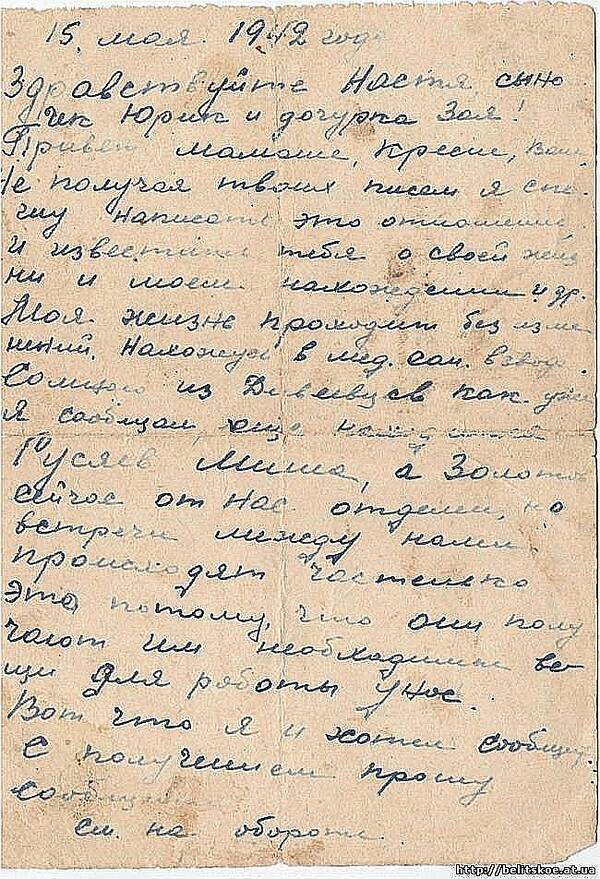 15. мая. 1942 года
Здравствуйте Настя, сыно
чек Юрик и дочурка Зоя!
Привет мамаше, Кресне,
Не получая твоих писем я спе
шу написать это отношение
и известить тебя о своей жиз
ни и моем нахождении и др.
Моя жизнь проходит без изме
нений. Нахожусь в мед. сан. взводе.
Со мною из Дивеевцев как уже
я сообщал, еще находится
Гусяев Миша, а Золотов
сейчас от нас отделен, но
встречи между нами
происходят частенько
это потому, что они полу
чают им необходимые ве
щи для работы у нас.
Вот что я и хотел сообщить.
С получением прошу
сообщить
см. на обороте.
http://belitskoe.at.ua